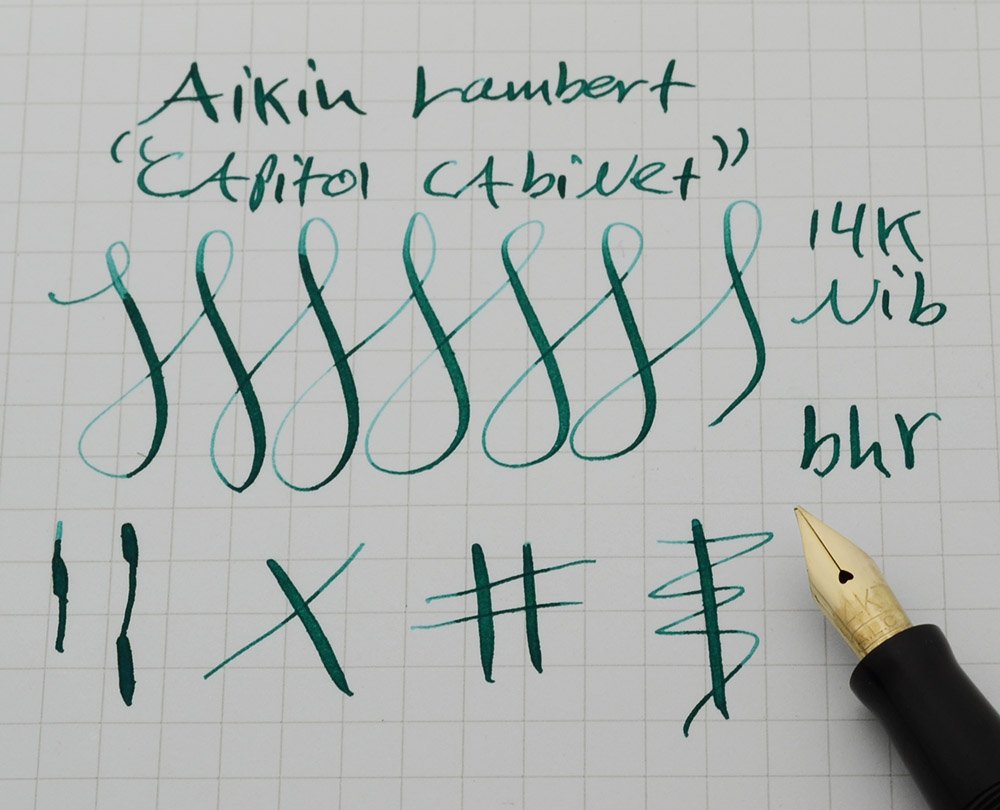 Aikin Lambert
"CApitol CAbiNet"
14K
Nib
bhr